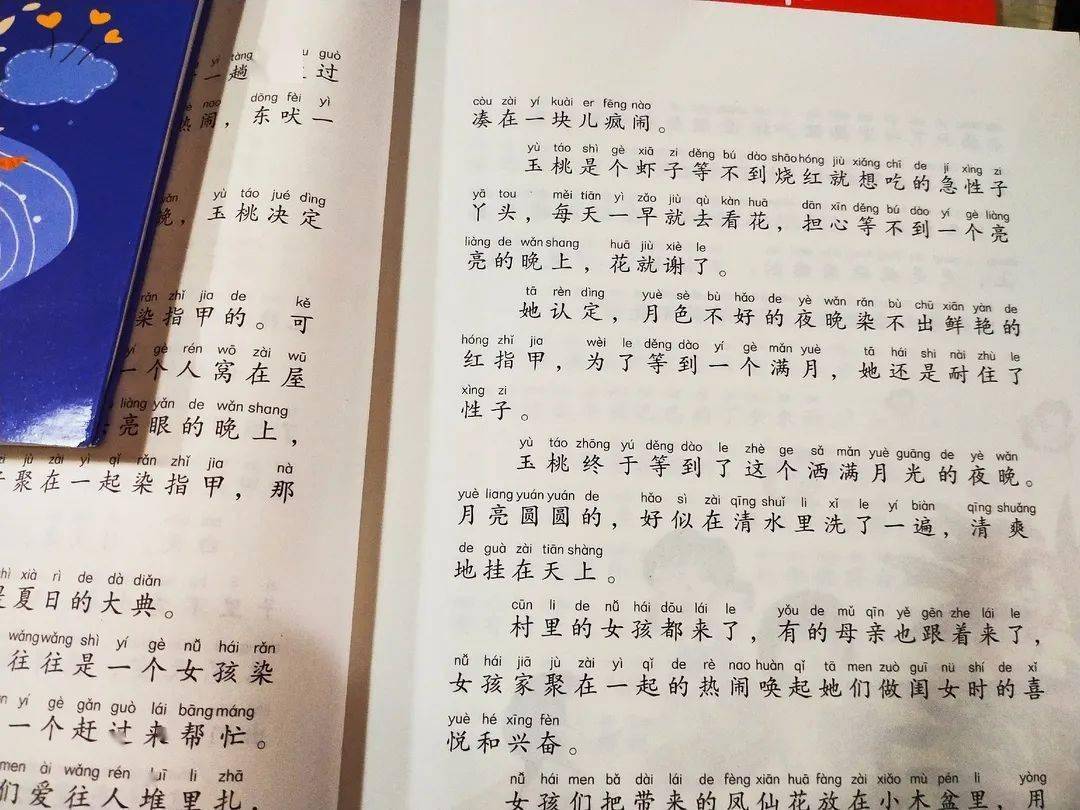 yí tàng guò
一趟 过
nao dōng fèi yì
热闹，东吠一
wǎn yù táo jué dìng
晚，玉桃决定
rǎn zhǐ jia de kě
染指甲的。可
yí gè rén wō zài wū
一个人窝在屋
liàng yǎn de wǎn shang
亮眼的晚上，
jù zài yì qǐ rǎn zhǐ jia nà
聚在一起染指甲，那
shì xià rì de dà diǎn
是夏日的大典。
wǎng wǎng shì yí gè nǚ hái rǎn
往往是一个女孩染
yí gè gǎn guò lái bāng máng
一个赶过来帮忙。
men ài wǎng rén duī li zhā
们爱往人堆里扎，
còu zài yí kuài er fēng nào
凑在一块儿疯闹。
yù táo shì gè xiā zi děng bú dào shāo hóng jiù xiǎng chī de jí xìng zi
玉桃是个虾子等不到烧红就想吃的急性子
yā tou měi tiān yì zǎo jiù qù kàn huā dān xīn děng bú dào yí gè liàng
丫头，每天一早就去看花，担心等不到一个亮
liàng de wǎn shang huā jiù xiè le
亮的晚上，花就谢了。
tā rèn dìng yuè sè bù hǎo de yè wǎn rǎn bù chū xiān yàn de
她认定，月色不好的夜晚染不出鲜艳的
hóng zhǐ jia wèi le děng dào yí gè mǎn yuè tā hái shi nài zhù le
红指甲，为了等到一个满月，她还是耐住了
xìng zi
性子。
yù táo zhōng yú děng dào le zhè ge sǎ mǎn yuè guāng de yè wǎn
玉桃终于等到了这个洒满月光的夜晚。
yuè liang yuán yuán de hǎo sì zài qīng shuǐ li xǐ le yí biàn qīng shuǎng
月亮圆圆的，好似在清水里洗了一遍，清爽
de guà zài tiān shàng
地挂在天上。
cūn li de nǚ hái dōu lái le yǒu de mǔ qīn yě gēn zhe lái le
村里的女孩都来了，有的母亲也跟着来了，
nǚ hái jiā jù zài yì qǐ de rè nao huàn qǐ tā men zuò guī nü shí de xǐ
女孩家聚在一起的热闹唤起她们做闺女时的喜
yuè hé xīng fèn
悦和兴奋。
nǚ hái men bǎ dài lái de fèng xiān huā fàng zài xiǎo mù pén li yòng
女孩们把带来的凤仙花放在小木盆里，用